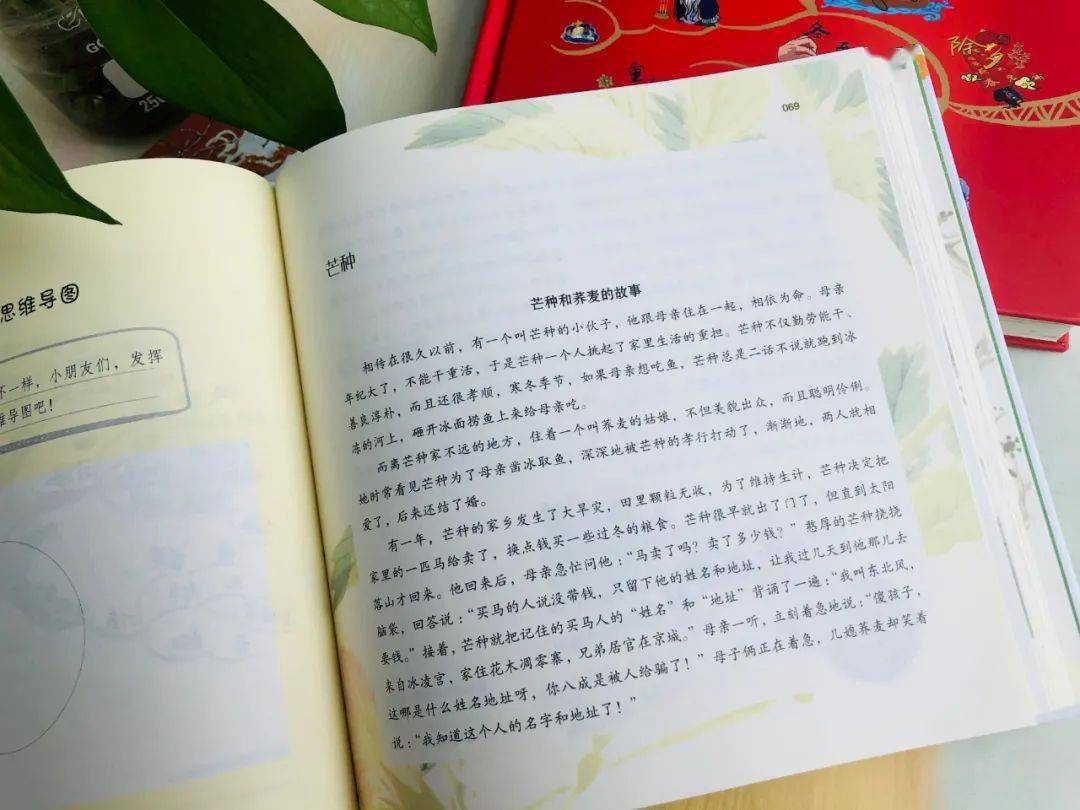 思维导图
不一样，小朋友们，发挥
维导图吧！
069
芒种
芒种和荞麦的故事
相传在很久以前，有一个叫芒种的小伙子，他跟母亲住在一起，相依为命。母亲
年纪大了，不能干重活，于是芒种一个人挑起了家里生活的重担。芒种不仅勤劳能干、
善良淳朴，而且还很孝顺，寒冬季节，如果母亲想吃鱼，芒种总是二话不说就跑到冰
冻的河上，砸开冰面捞鱼上来给母亲吃。
而离芒种家不远的地方，住着一个叫荞麦的姑娘，不但美貌出众，而且聪明伶俐。
她时常看见芒种为了母亲凿冰取鱼，深深地被芒种的孝行打动了，渐渐地，两人就相
爱了，后来还结了婚。
有一年，芒种的家乡发生了大旱灾，田里颗粒无收，为了维持生计，芒种决定把
家里的一匹马给卖了，换点钱买一些过冬的粮食。芒种很早就出了门了，但直到太阳
落山才回来。他回来后，母亲急忙问他：“马卖了吗？卖了多少钱？”憨厚的芒种挠挠
脑袋，回答说：“买马的人说没带钱，只留下他的姓名和地址，让我过几天到他那儿去
要钱。”接着，芒种就把记住的买马人的“姓名”和“地址”背诵了一遍：“我叫东北风，
来自冰凌宫，家住花木凋零寨，兄弟居官在京城。”母亲一听，立刻着急地说：“傻孩子，
这哪是什么姓名地址呀，你八成是被人给骗了！”母子俩正在着急，儿媳荞麦却笑着
说：“我知道这个人的名字和地址了！”
除夕
重
冬
GO
250